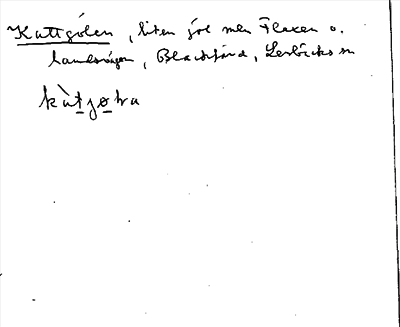 Kattgölen, liten göl mell Flaxen o.
landsvägen, Blackfjärd, Lerbäcks sn
kàtjøtra